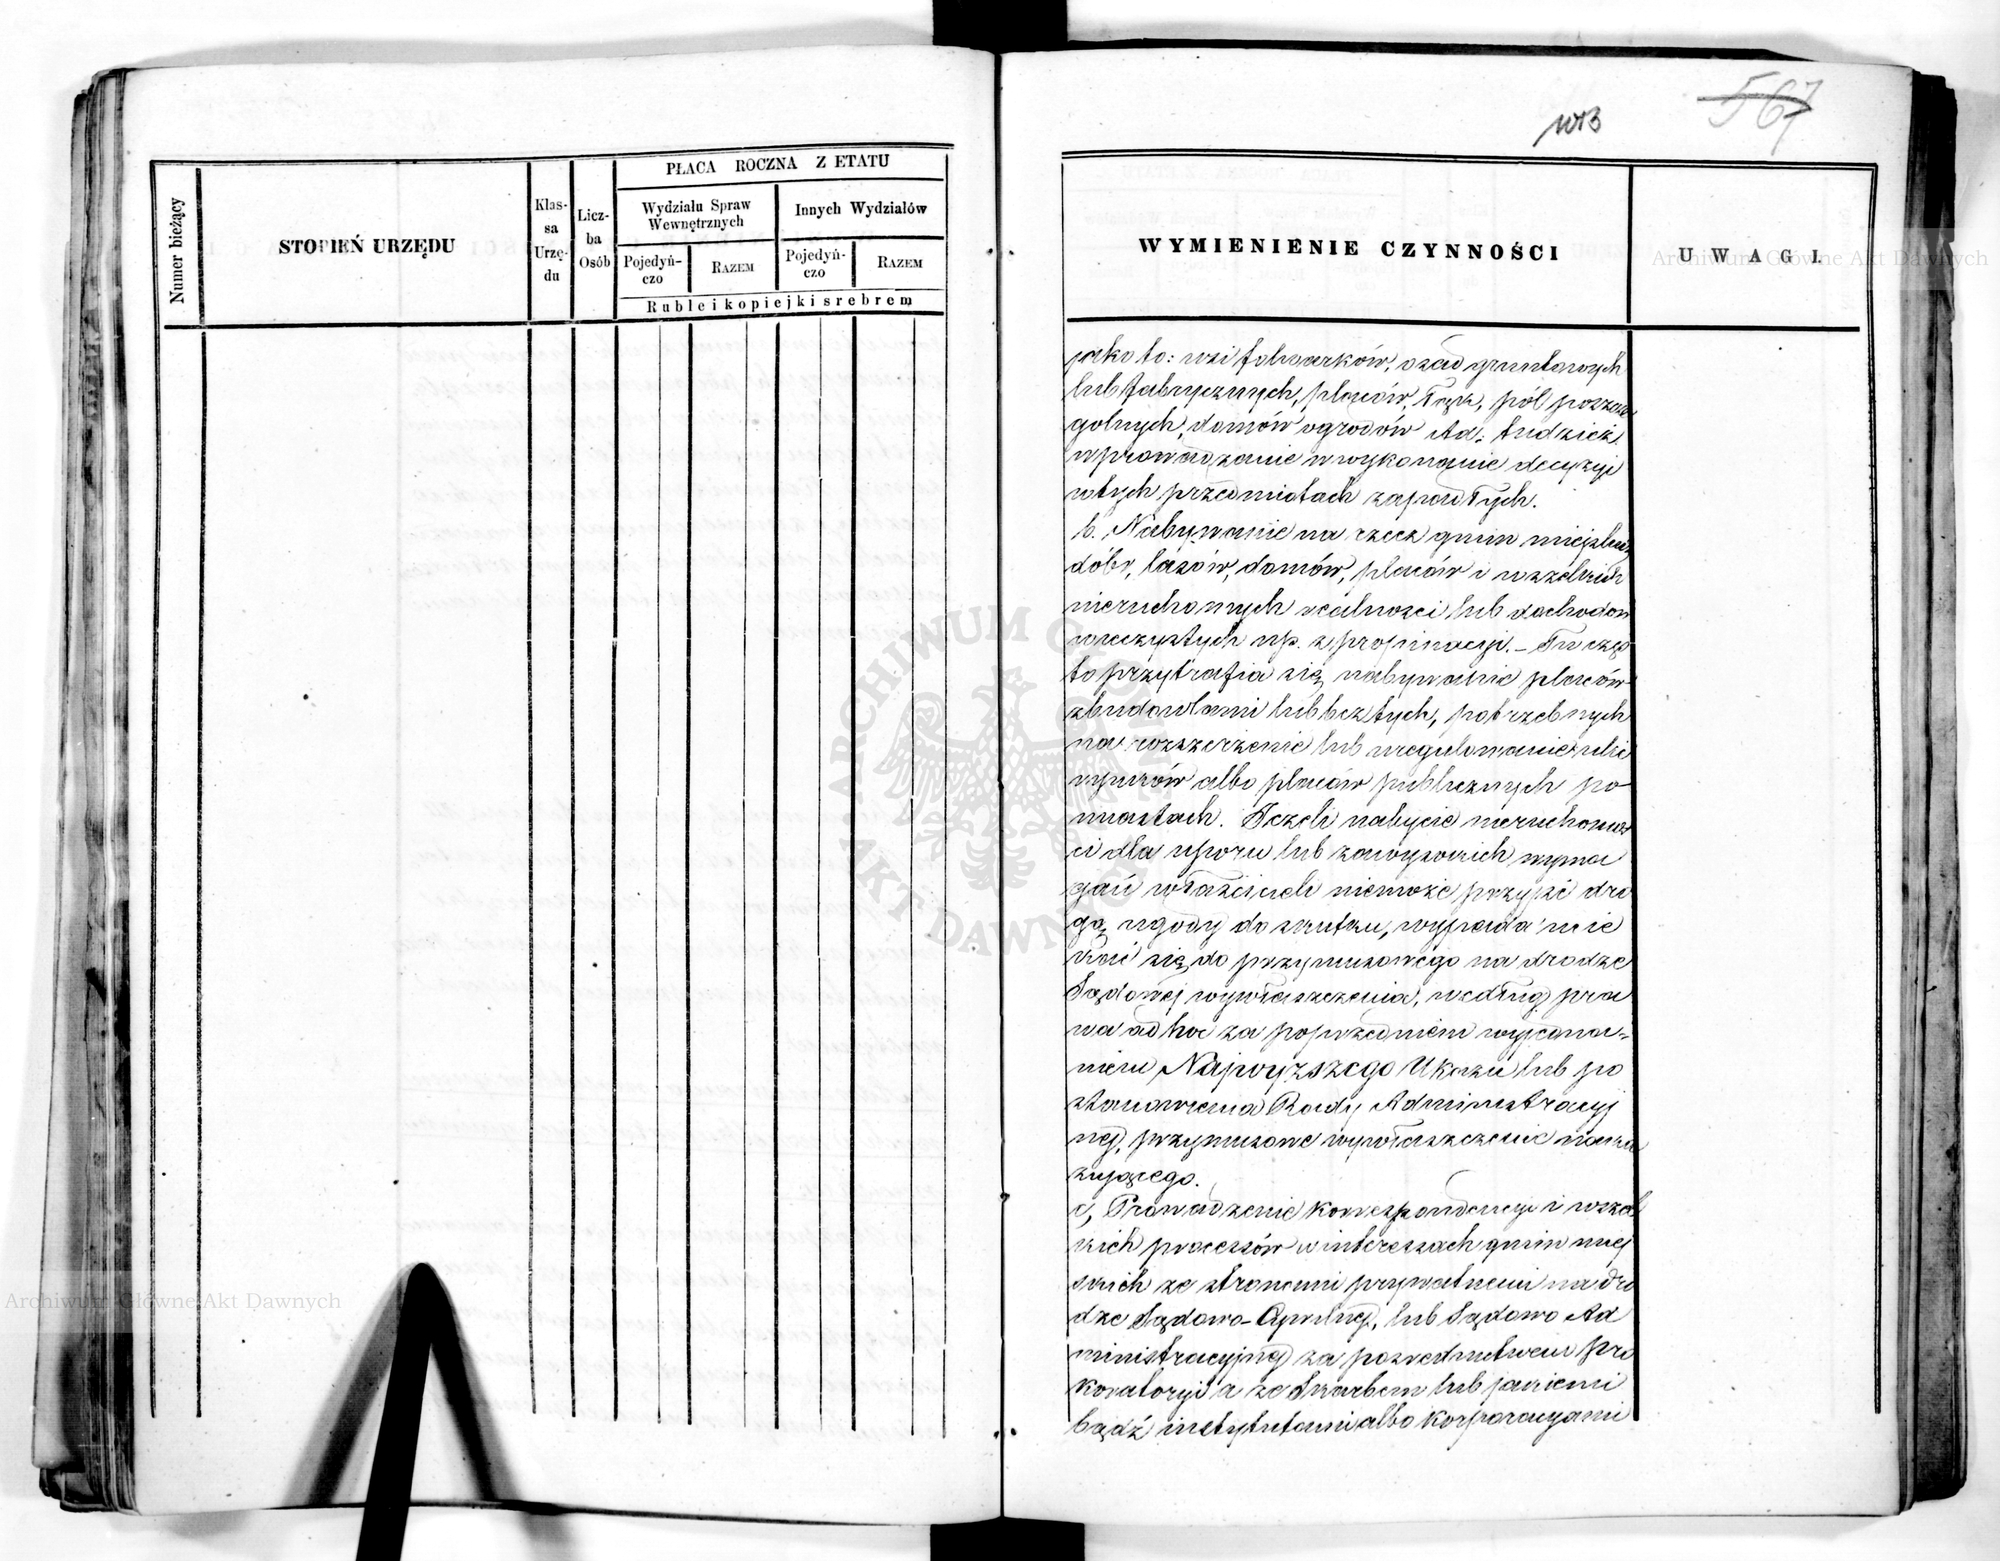 Numer bieżący
STOPIEŃ URZĘDU
Klas-
sa
Urzę-
du
Licz-
ba
Osób
PŁACA ROCZNA Z ETATU
Wydziału Spraw
Wewnętrznych
Innych Wydziałów
Pojedyń-
czo
RAZEM
Pojedyń-
czo
RAZEM
Ruble i kopiejki srebrem
567
WYMIENIENIE CZYNNOŚCI
UWAGI.
jako to: wsi folwarków, osad gruntowych
lub fabrycznych, placów, Łąk, pól poszcze
gólnych, domów ogrodów itd. tudzież
wprowadzanie w wykonanie decyzyi
w tych przedmiotach zapadłych.
b. Nabywanie na rzecz gmin miejskich
dóbr, lasów, domów, placów i wszelkich
nieruchomych realności lub dochodów
wieczystych np. z propinacyi. – Tu częs
to przytrafia się nabywanie placów
z budowlami lub bez tych, potrzebnych
na rozszerzenie lub uregulowanie ulic
rynków albo placów publicznych po
miastach. Jeżeli nabycie nieruchomoś
ci dla uporu lub zawysokich wyma
gań właścicieli niemoże przyjść dro
gą ugody do skutku, wypada ucie
kać się do przymusowego na drodze
Sądowej wywłaszczenia, według pra
wa ad hoc za poprzedniem wyjedna-
niem Najwyższego Ukazu lub po
stanowienia Rady Administracyj
nej, przymusowe wywłaszczenie naka
zującego.
c, Prowadzenie korrespondencyi i wszel
kich processów w interesach gmin miej
skich ze stronami prywatnemi na dro
dze Sądowo-Cywilnej, lub Sądowo Ad
ministracyjnej za pośrednictwem pro
kuratoryi a ze Skarbem lub jakiemi
bądź instytutami albo korporacyami
Archiwum Główne Akt Dawnych
Archiwum Główne Akt Dawnych
ARCHIWUM GŁÓWNE AKT DAWNYCH